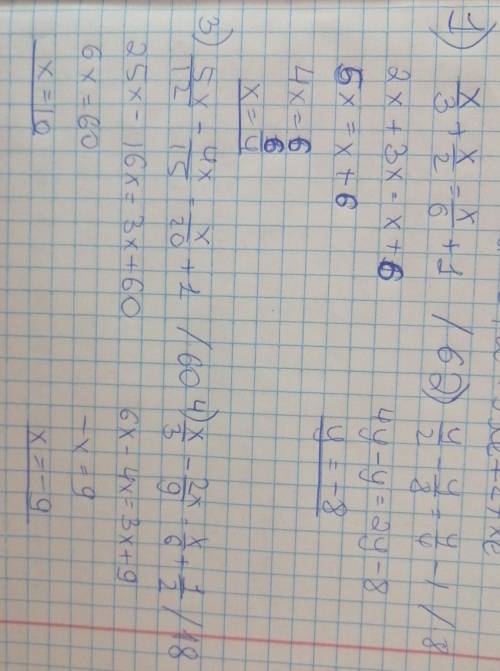 1) x/3 + x/2 = x/6 + 1 /6
2x + 3x = x + 6
5x = x + 6
4x = 6
x = 6/4
2) y/2 - y/8 = y/4 - 1 /8
4y - y = 2y - 8
y = -8
3) 5x/12 - 4x/15 = x/20 + 1 /60
25x - 16x = 3x + 60
6x = 60
x = 10
4) x/3 - 2x/9 = x/6 + 1/2 /18
6x - 4x = 3x + 9
-x = 9
x = -9